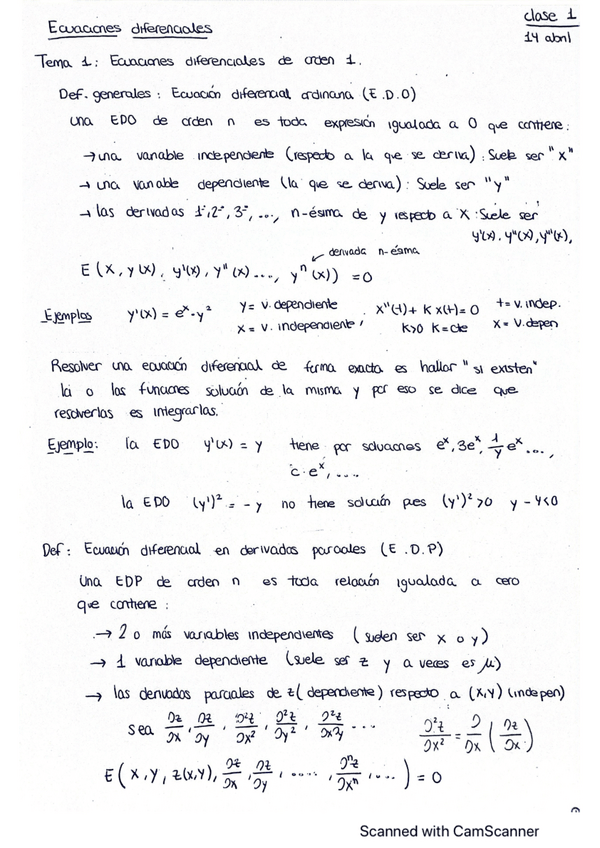 Ecuaciones diferenciales
clase 1
14 abril
Tema 1: Ecuaciones diferenciales de orden 1.
Def. generales: Ecuación diferencial ordinaria (E.D.O)
una EDO de orden n es toda expresión igualada a 0 que contiene:
→ una variable independiente (respecto a la que se deriva): Suele ser "x"
→ una variable dependiente (la que se deriva): Suele ser "y"
→ las derivadas 1ª, 2ª, 3ª, ..., n-ésima de y respecto a X: Suele ser
y'(x), y''(x), y'''(x),
derivada n-ésima
E (x, y(x), y'(x), y''(x) ..., yⁿ(x)) = 0
Ejemplos y'(x) = eˣ - y² y = v. dependiente x''(t) + K x(t) = 0 t = v. indep.
x = v. independiente, K>0 K=cte x = v. depen
Resolver una ecuación diferencial de forma exacta es hallar "si existen"
la o las funciones solución de la misma y por eso se dice que
resolverlas es integrarlas.
Ejemplo: la EDO y'(x) = y tiene por soluciones eˣ, 3eˣ, 1/4 eˣ ...,
c·eˣ, ....
la EDO (y')² = -y no tiene solución pues (y')² > 0 y -y<0
Def: Ecuación diferencial en derivadas parciales (E.D.P)
Una EDP de orden n es toda relación igualada a cero
que contiene:
→ 2 o más variables independientes (suelen ser x o y)
→ 1 variable dependiente (suele ser z y a veces es μ)
→ las derivadas parciales de z (dependiente) respecto a (x,y) (indepen)
sea ∂z/∂x, ∂z/∂y, ∂²z/∂x², ∂²z/∂y², ∂²z/∂x∂y ... ∂²z/∂x² = ∂/∂x (∂z/∂x)
E (x, y, z(x,y), ∂z/∂x, ∂z/∂y, ....., ∂ⁿz/∂xⁿ, ....) = 0
Scanned with CamScanner